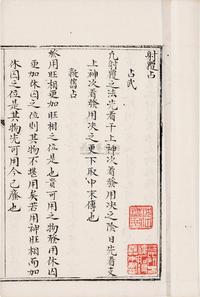 射覆占
占式
凡射覆之法先看干上神次看發用次之陰日先看支
上神次看發用次之更下取中末傳也
斅舊占
發用旺相更如旺相之位是也貴可用之物發用休囚
更加休囚之位則其物不堪用矣若用神旺相而加
休囚之位是其物先可用今已廢也